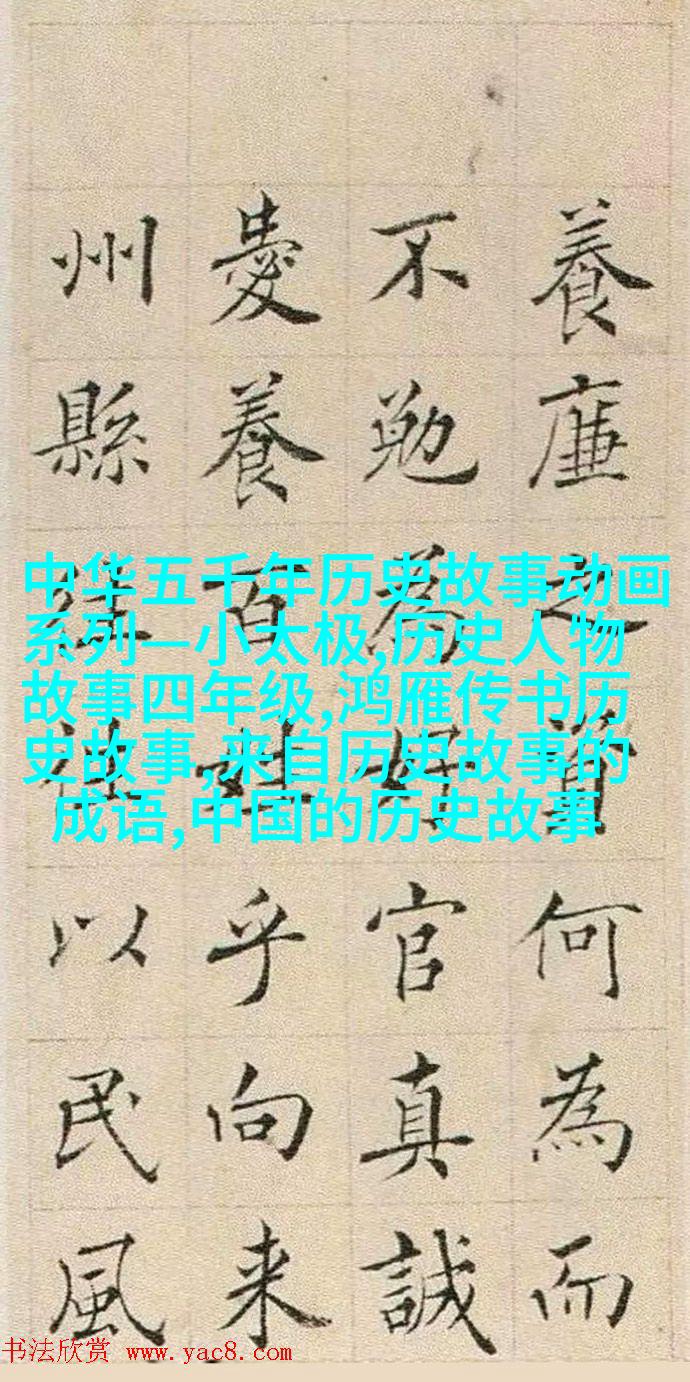 養廉之資何為而
不勉為好官真誠
愛養百姓乎向来
州縣往往以民風
中华五千年历史故事动画
系列—小太极,历史人物
故事四年级,鸿雁传书历
史故事,来自历史故事的
成语,中国的历史故事
书法欣赏 www.yac8.com